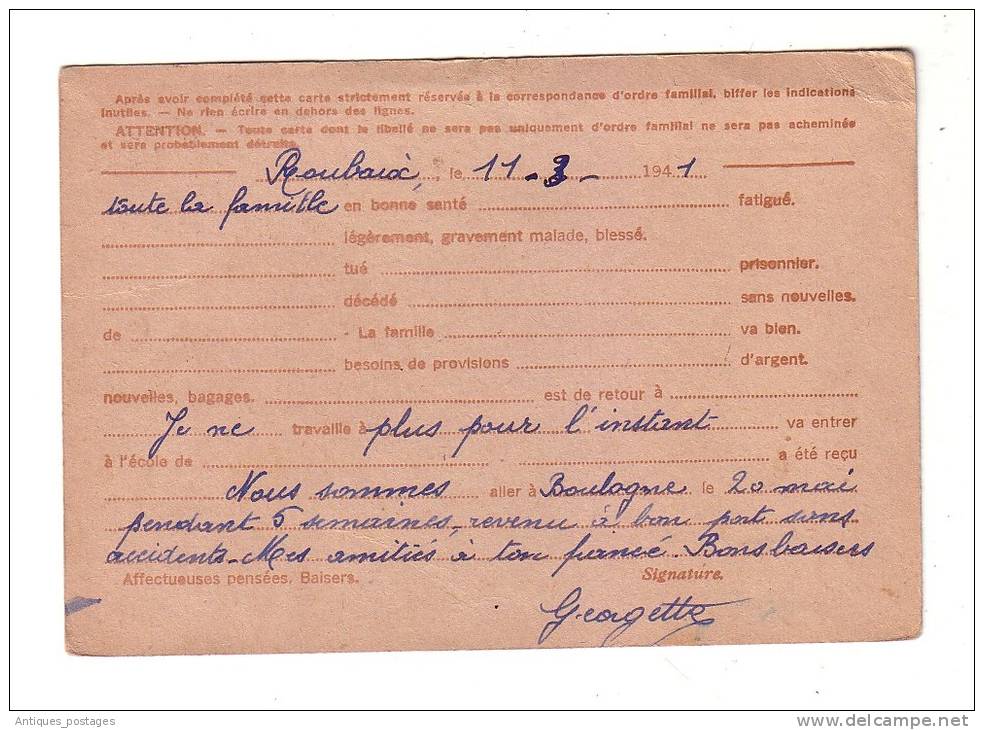 Après avoir complété cette carte strictement réservée à la correspondance d'ordre familial, biffer les indications
inutiles. — Ne rien écrire en dehors des lignes.
ATTENTION. — Toute carte dont le libellé ne sera pas uniquement d'ordre familial ne sera pas acheminée
et sera probablement détruite.
Roubaix, le 11 - 3 - 1941
toute la famille en bonne santé fatigué.
légèrement, gravement malade, blessé.
tué prisonnier.
décédé sans nouvelles.
de - La famille va bien.
besoins de provisions d'argent.
nouvelles, bagages. est de retour à
Je ne travaille à plus pour l'instant va entrer
à l'école de a été reçu
Nous sommes aller à Boulogne le 20 mai
pendant 5 semaines, revenu à bon port sans
accidents - Mes amitiés à ton fiancé. Bons baisers
Affectueuses pensées, Baisers. Signature.
Georgette
Antiques_postages www.delcampe.net